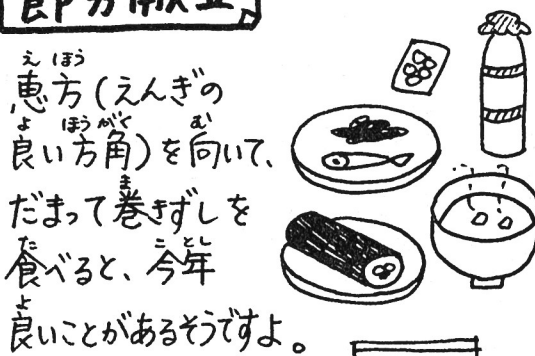 節分献立
恵方(えんぎの
良い方角)を向いて、
だまって巻きずしを
食べると、今年
良いことがあるそうですよ。